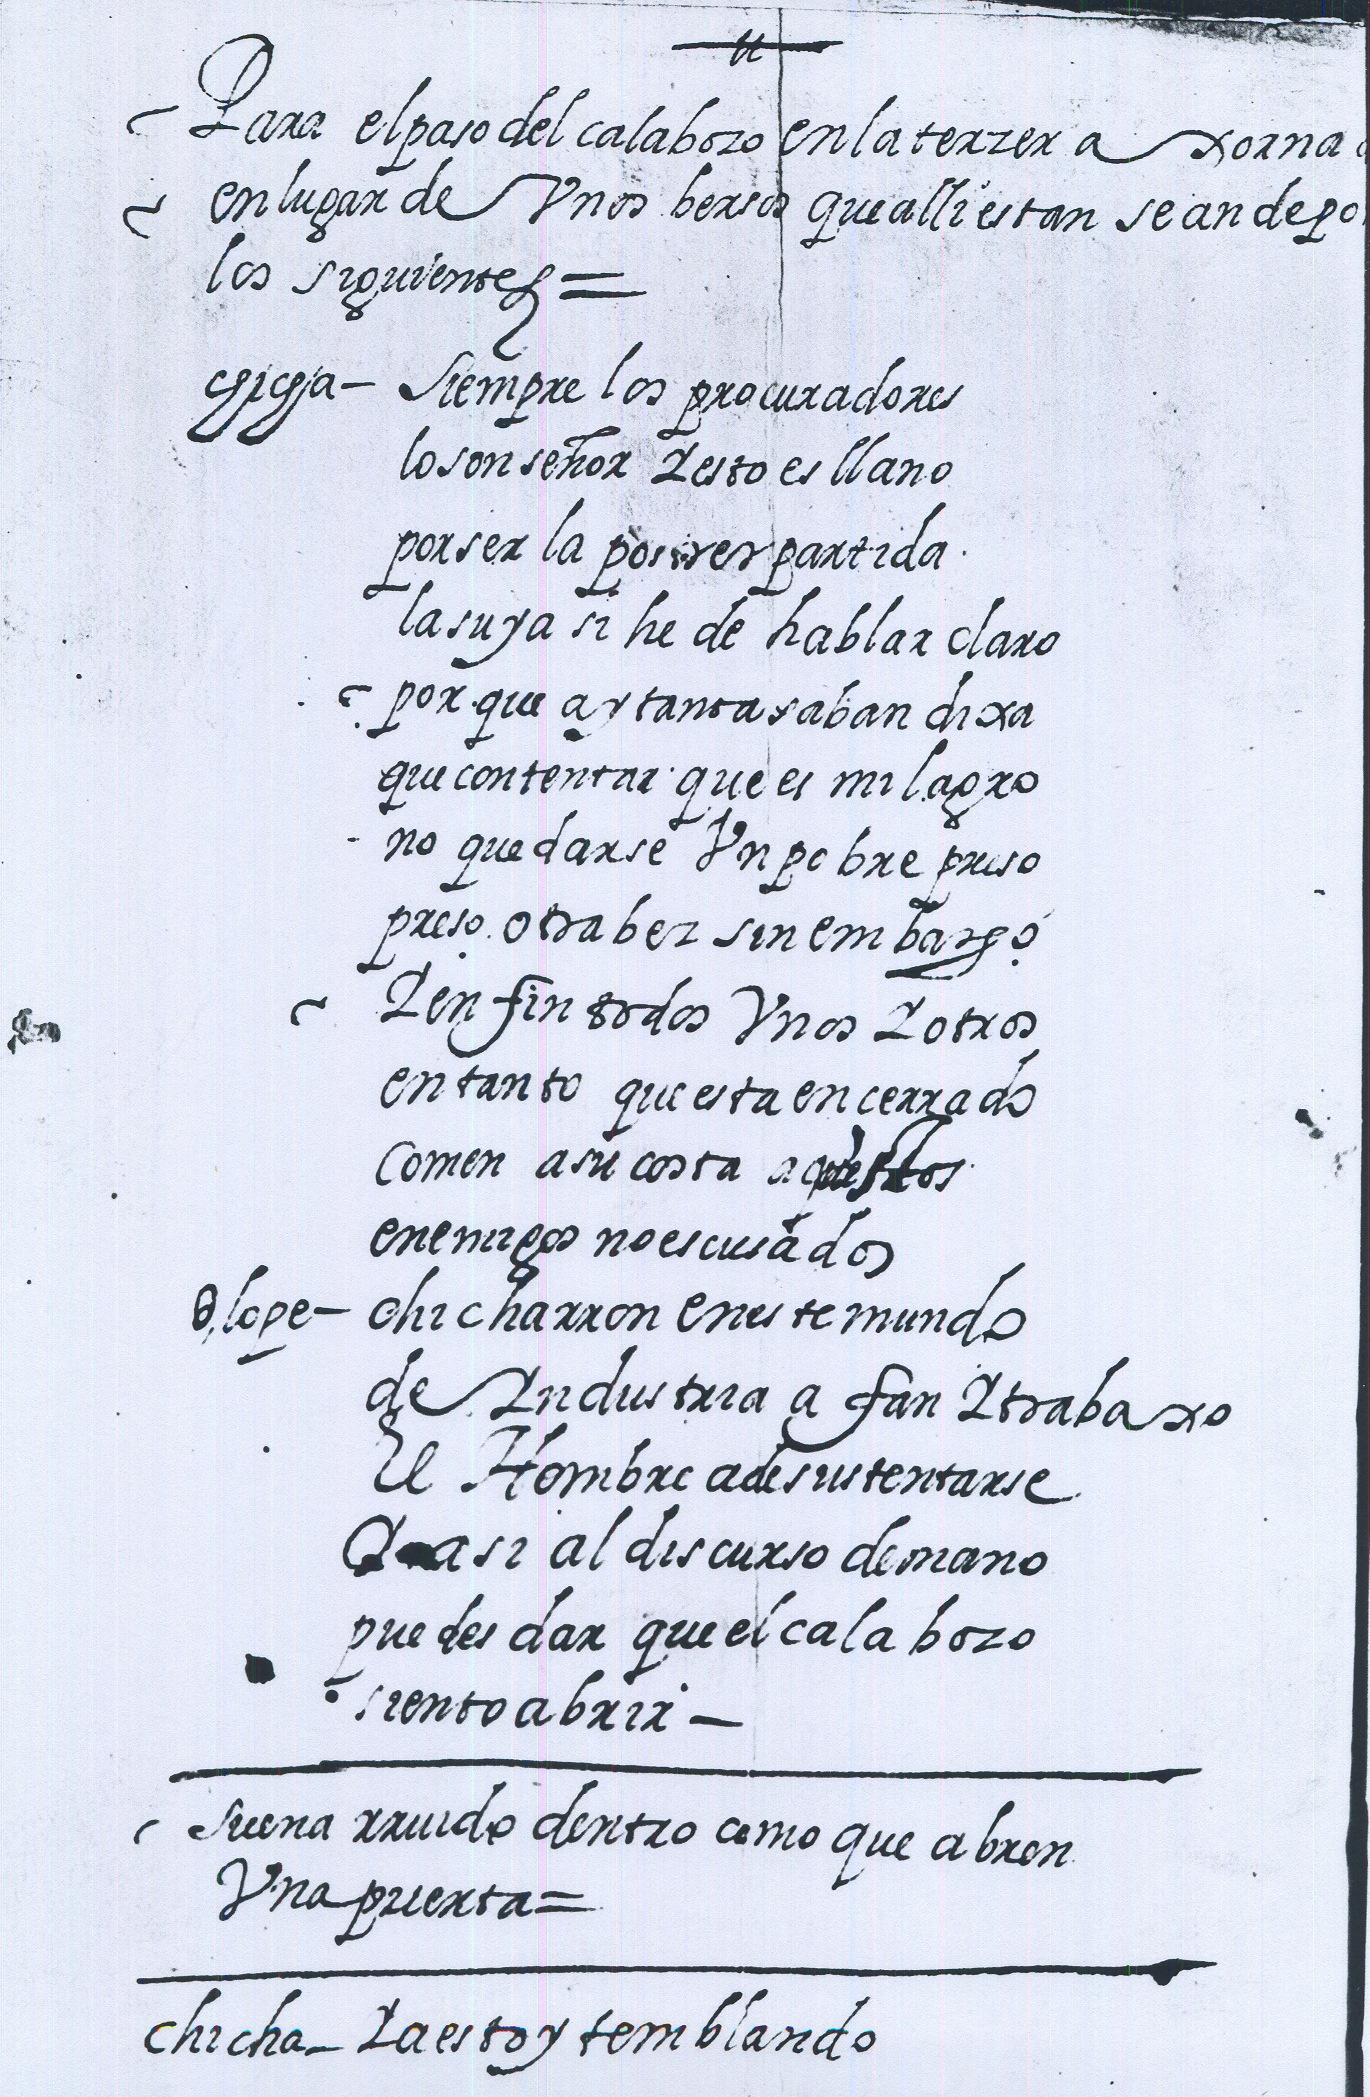 Para el paso del calabozo en la terzera xorna
en lugar de Vnos bersos que alli estan se an de po
los siguientes =
chicha – siempre los procuradores
lo son señor Y esto es llano
por ser la postrer partida
la suya si he de hablar claro
por que ay tanta sabandixa
que contentar que es milagro
no quedarse Vn pobre preso
preso otra bez sin embargo
Y en fin todos Vnos Y otros
en tanto que esta encerrado
comen a su costa aquestos
enemigos no escusados
D, lope – chicharron en este mundo
de Yndustria afan Y trabaxo
El Hombre a de sustentarse
Y asi al discurso de mano
puedes dar que el calabozo
siento abrir –
suena rruido dentro como que abren
Vna puerta =
chicha – Ya estoy temblando